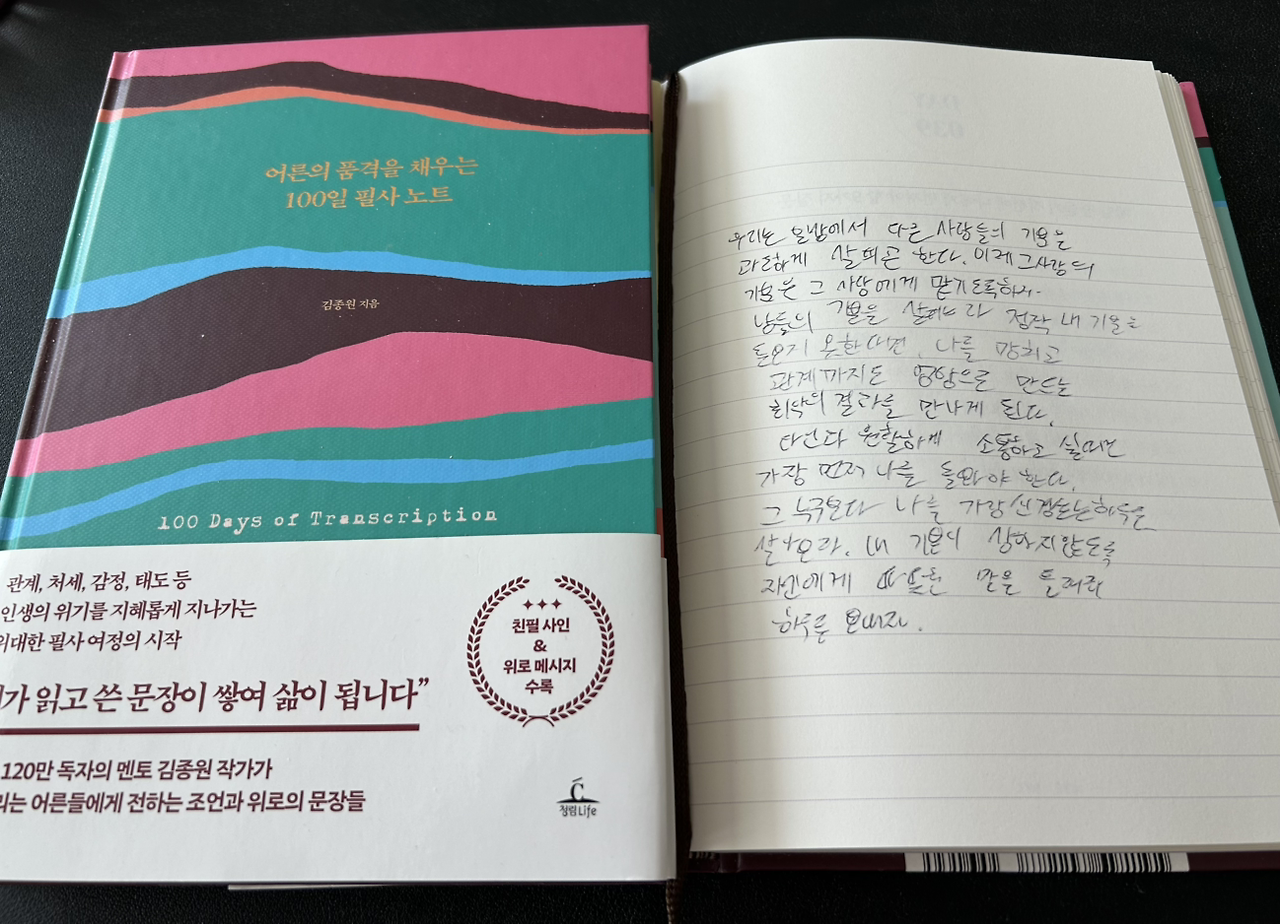 어른의 품격을 채우는
100일 필사 노트
김종원 지음
100 Days of Transcription
관계, 처세, 감정, 태도 등
인생의 위기를 지혜롭게 지나가는
위대한 필사 여정의 시작
가 읽고 쓴 문장이 쌓여 삶이 됩니다”
120만 독자의 멘토 김종원 작가가
는 어른들에게 전하는 조언과 위로의 문장들
친필 사인
&
위로 메시지
수록
C
청림Life
우리는 모임에서 다른 사람들의 기분을
과도하게 살피곤 한다. 이제 그 사람의
기분은 그 사람에게 맡기도록 하자.
남들의 기분을 살피느라 정작 내 기분을
돌보지 못한다면, 나를 망치고
관계까지도 엉망으로 만드는
최악의 결과를 만나게 된다.
타인과 원활하게 소통하고 싶다면
가장 먼저 나를 돌봐야 한다.
그 누구보다 나를 가장 신경쓰는 하루를
살아보라. 내 기분이 상하지 않도록
자신에게 따뜻한 말을 들려줘
하루를 보내자.